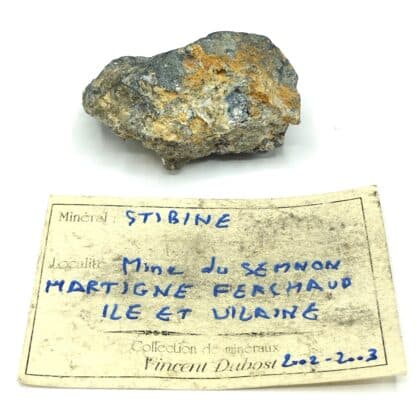 Minéral : STIBINE
Localité Mine du SEMNON
MARTIGNE FERCHAUD
ILE ET VILAINE
Collection de minéraux
Vincent Dubost 2002-2003